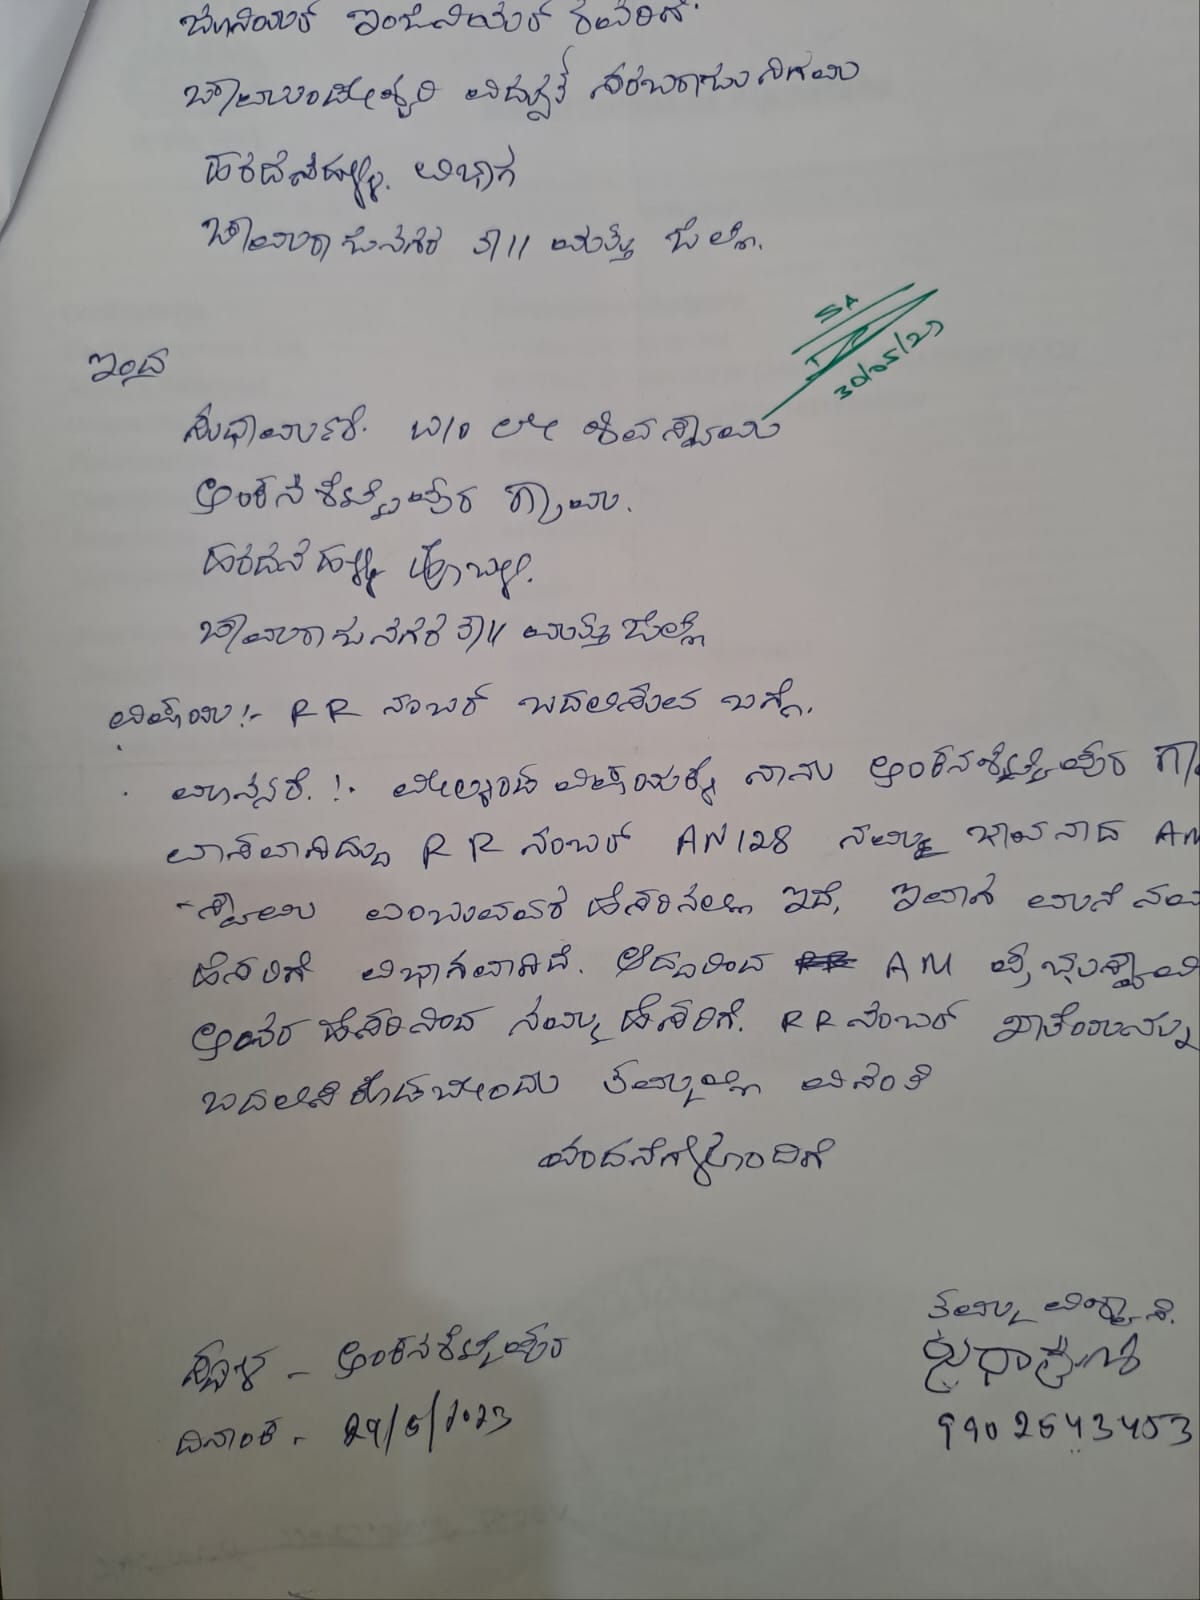 ಜೂನಿಯರ್ ಇಂಜಿನಿಯರ್ ರವರಿಗೆ
ಚಾಮುಂಡೇಶ್ವರಿ ವಿದ್ಯುತ್ ಸರಬರಾಜು ನಿಗಮ
ಹರದನಹಳ್ಳಿ. ವಿಭಾಗ
ಚಾಮರಾಜನಗರ ತಾ|| ಮತ್ತು ಜಿಲ್ಲೆ.
SA
30/05/23
ಇಂದ
ಸುಧಾಮಣಿ. W/O ಲೇ ಶಿವಸ್ವಾಮಿ
ಅಂಕನಶೆಟ್ಟಿಪುರ ಗ್ರಾಮ.
ಹರದನಹಳ್ಳಿ ಹೋಬಳಿ.
ಚಾಮರಾಜನಗರ ತಾ|| ಮತ್ತು ಜಿಲ್ಲೆ
ವಿಷಯ:- RR ನಂಬರ್ ಬದಲಿಸುವ ಬಗ್ಗೆ.
ಮಾನ್ಯರೆ. :- ಮೇಲ್ಕಂಡ ವಿಷಯಕ್ಕೆ ನಾನು ಅಂಕನಶೆಟ್ಟಿಪುರ ಗ್ರಾ
ವಾಸವಾಗಿದ್ದು RR ನಂಬರ್ AN128 ನಮ್ಮ ಭಾವನಾದ AM
-ಸ್ವಾಮಿ ಎಂಬುವವರ ಹೆಸರಿನಲ್ಲಿ ಇದೆ, ಇವಾಗ ಮನೆ ನಮ
ಹೆಸರಿಗೆ ವಿಭಾಗವಾಗಿದೆ. ಆದ್ದರಿಂದ AM ಪ್ರಭುಸ್ವಾಮಿ
ಅವರ ಹೆಸರಿನಿಂದ ನಮ್ಮ ಹೆಸರಿಗೆ. RR ನಂಬರ್ ಖಾತೆಯನ್ನು
ಬದಲಿಸಿ ಕೊಡಬೇಕೆಂದು ತಮ್ಮಲ್ಲಿ ವಿನಂತಿ
ವಂದನೆಗಳೊಂದಿಗೆ
ತಮ್ಮ ವಿಶ್ವಾಸಿ.
ಸ್ಥಳ - ಅಂಕನಶೆಟ್ಟಿಪುರ
ಸುಧಾಮಣಿ
ದಿನಾಂಕ - 29/5/2023
9902543453